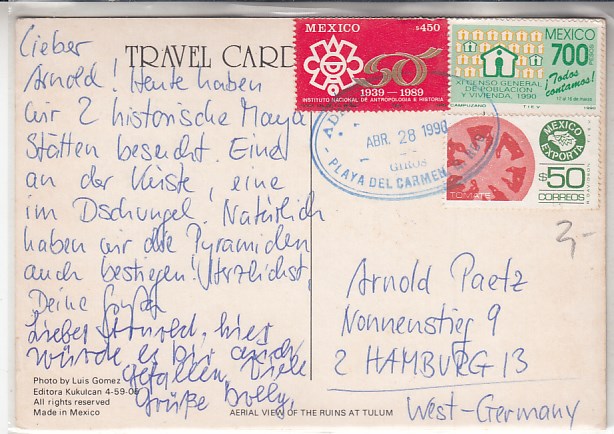 TRAVEL CARD
Lieber
Arnold, Heute haben
wir 2 historische Maya
Stätten besucht. Eine
an der Küste, eine
im Dschungel. Natürlich
haben wir die Pyramiden
auch bestiegen! Herzlichst,
Deine
Lieber Arnold, hier
würde es dir auch
gefallen, viele
Grüße Dolly,
Photo by Luis Gomez
Editora Kukulcan 4-59-06
All rights reserved
Made in Mexico
AERIAL VIEW OF THE RUINS AT TULUM
MEXICO $450
50
1939 - 1989
INSTITUTO NACIONAL DE ANTROPOLOGIA E HISTORIA
MEXICO
700 PESOS
XI CENSO GENERAL
DE POBLACION
Y VIVIENDA, 1990
¡Todos
contamos!
12 al 16 de marzo
CAMPUZANO TIEV
MEXICO
EXPORTA
$50
CORREOS
TOMATE
ABR. 28 1990
GIROS
PLAYA DEL CARMEN Q ROO
3,-
Arnold Paetz
Nonnenstieg 9
2 HAMBURG 13
West-Germany